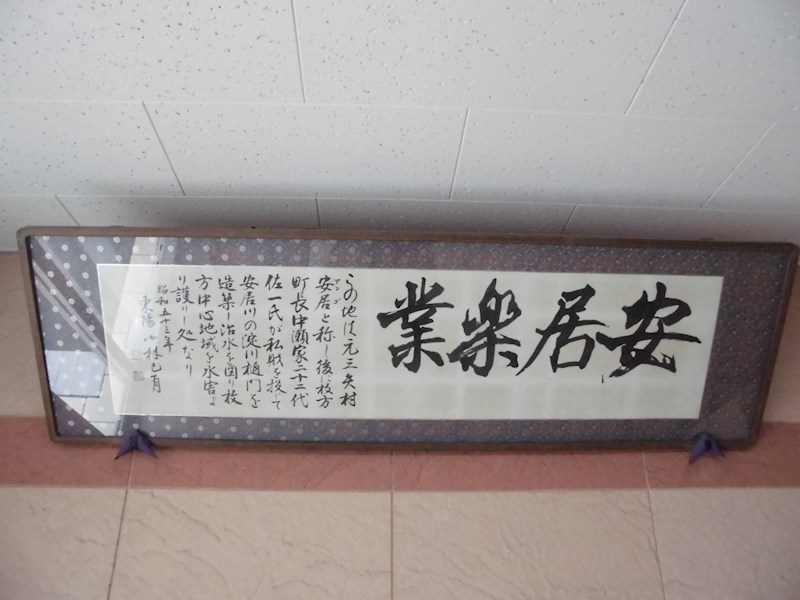 安居楽業
この地は元三矢村
安居と称し後に枚方
アンゴ
町長中瀬家二十二代
佐一氏が私財を投じて
安居川の淀川樋門を
造築し治水を図り枚
方中心地域を水害よ
り護りし処なり
昭和五十三年
東陽 小林巳育